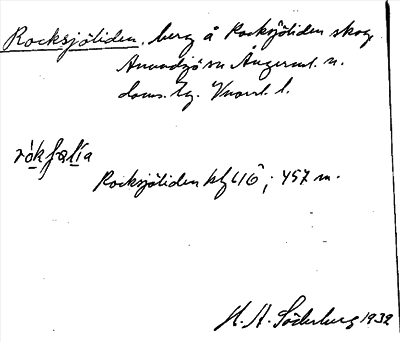 Rocksjöliden, berg å Rocksjöliden skog
Anundsjö sn Ångerml. n.
doms. tg. Vnorrl. l.
rókfælía
Rocksjöliden kbl 16; 457 m.
H. A. Söderberg 1932